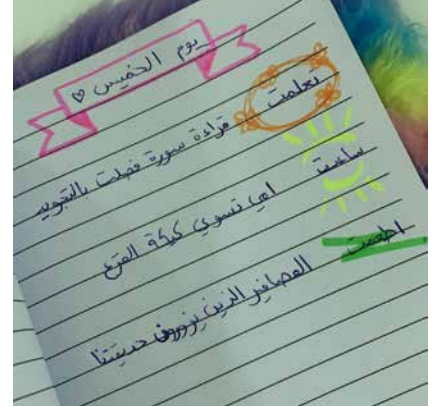 يوم الخميس ♡
تعلمت قراءة سورة فصلت بالتجويد
ساعدت امي تسوي كيكة القرع
اطعمت العصافير الذين يزورون حديقتنا